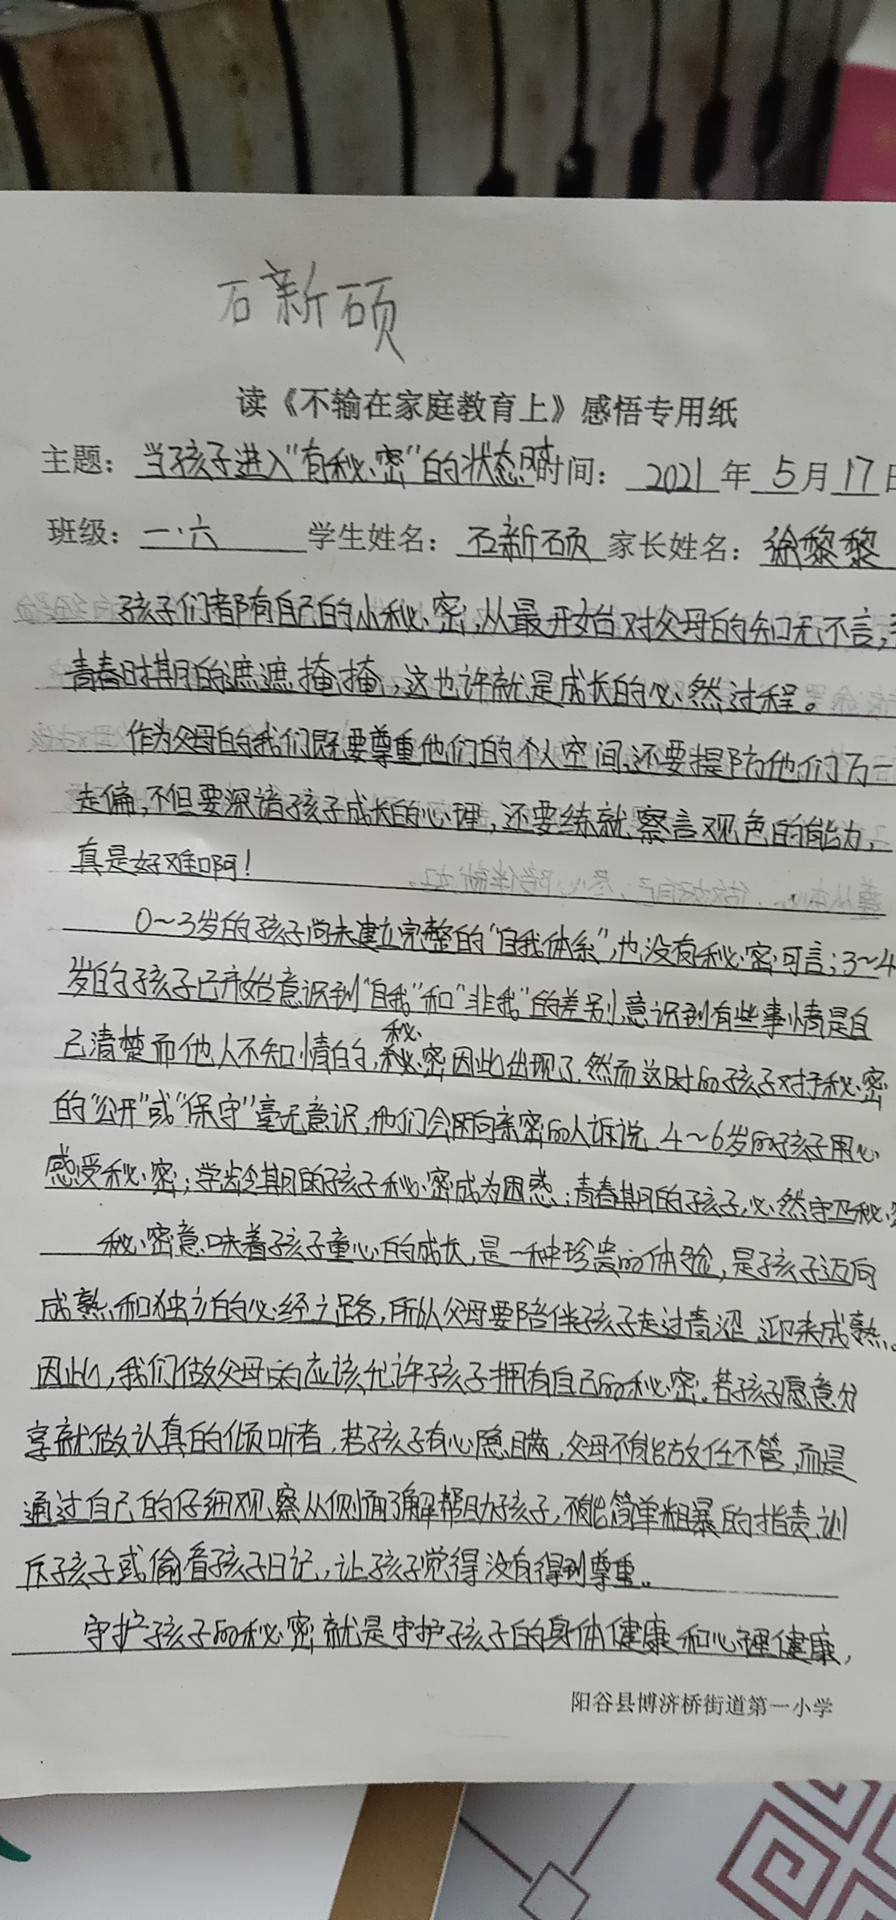 石新硕
读《不输在家庭教育上》感悟专用纸
主题：当孩子进入"有秘密"的状态 时间：2021年5月17日
班级：一·六 学生姓名：石新硕 家长姓名：徐黎黎
孩子们都有自己的小秘密,从最开始对父母的知无不言,
青春时期的遮遮掩掩,这也许就是成长的必然过程。
作为父母的我们既要尊重他们的个人空间,还要提防他们万一
走偏,不但要深谙孩子成长的心理,还要练就察言观色的能力,
真是好难啊!
0~3岁的孩子尚未建立完整的"自我体系",也没有秘密可言;3~4
岁的孩子已开始意识到"自我"和"非我"的差别,意识到有些事情是自
己清楚而他人不知情的,秘密因此出现了.然而这时的孩子对于秘密
的"公开"或"保守"毫无意识,他们会向亲密的人诉说.4~6岁的孩子用心
感受秘密;学龄期的孩子秘密成为困惑;青春期的孩子,必然守卫秘密
秘密意味着孩子童心的成长,是一种珍贵的体验,是孩子迈向
成熟和独立的必经之路,所以父母要陪伴孩子走过青涩 迎来成熟。
因此,我们做父母的应该允许孩子拥有自己的秘密.若孩子愿意分
享就做认真的倾听者,若孩子有心隐瞒,父母不能放任不管,而是
通过自己的仔细观察从侧面了解帮助孩子,不能简单粗暴的指责、训
斥孩子或偷看孩子日记,让孩子觉得没有得到尊重。
守护孩子的秘密就是守护孩子的身体健康和心理健康,
阳谷县博济桥街道第一小学